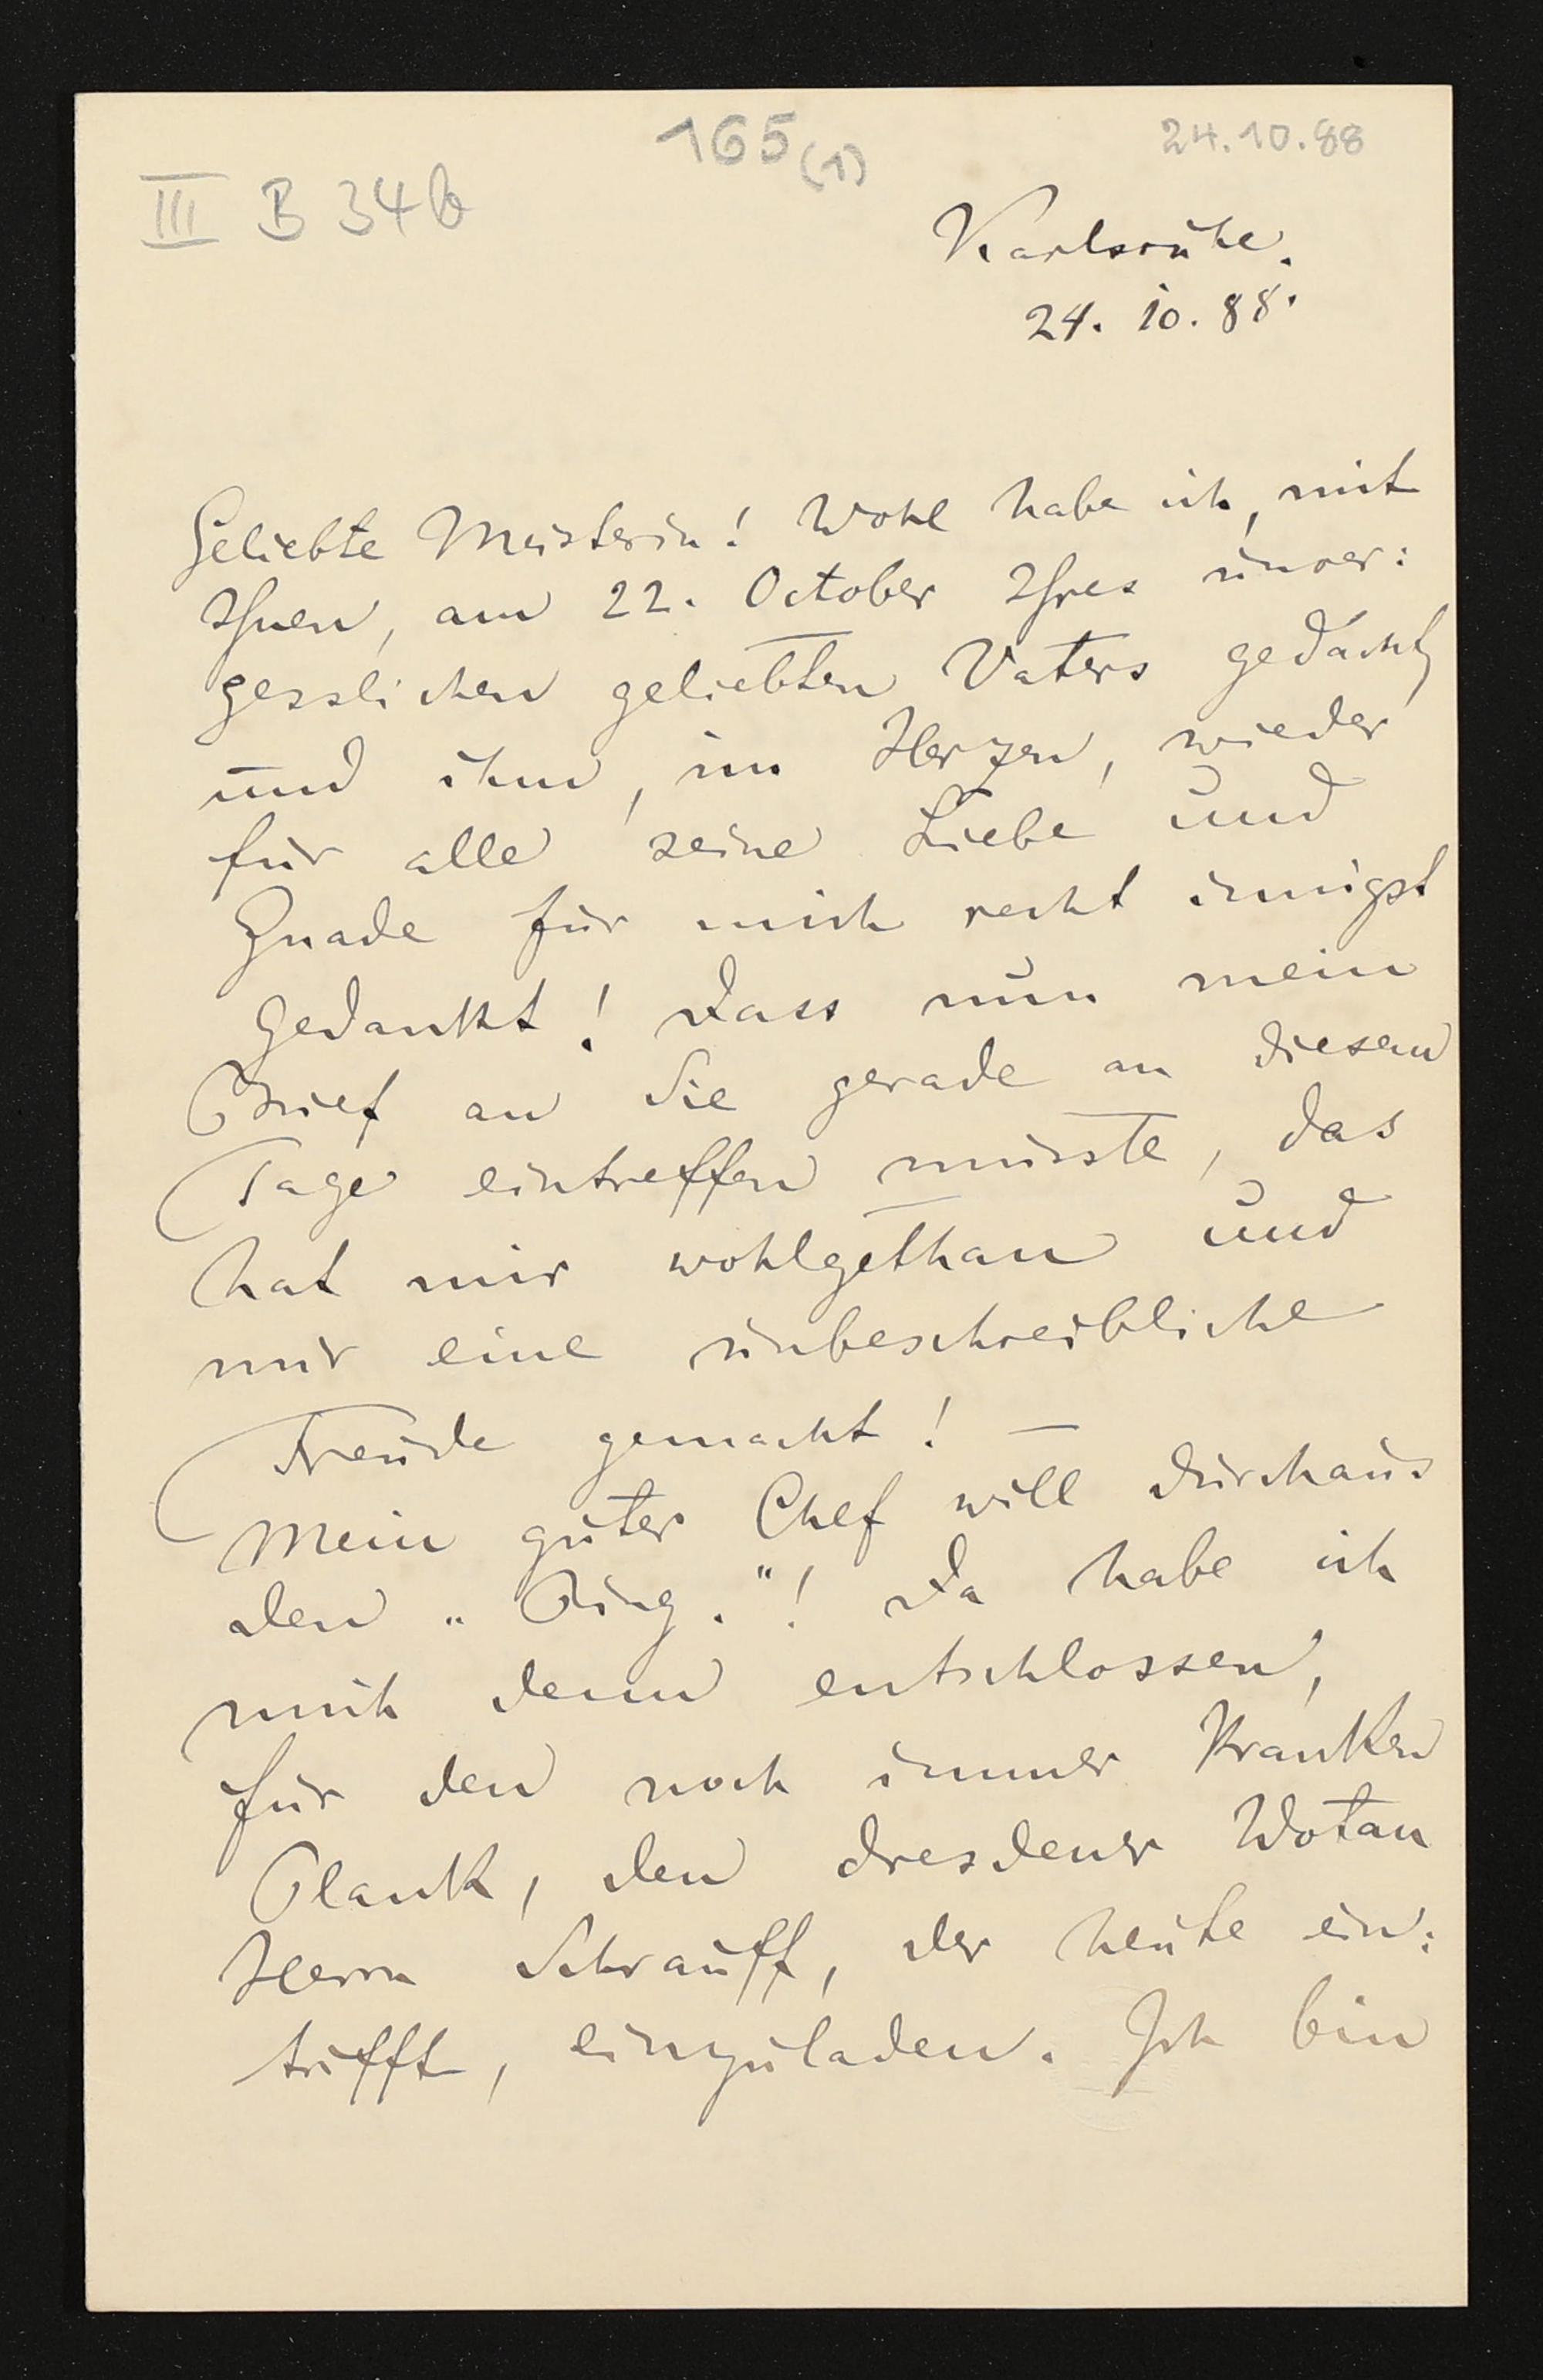 165 (1)
24.10.88
III B 34 b
Karlsruhe.
24. 10. 88.
Geliebte Meisterin! Wohl habe ich, mit
Ihnen, am 22. October Ihres unver:
gesslichen geliebten Vaters gedacht,
und ihm, im Herzen, wieder
für alle seine Liebe und
Gnade für mich recht innigst
gedankt! Dass nun mein
Brief an Sie gerade an diesem
Tage eintreffen musste, das
hat mir wohlgethan und
mir eine unbeschreibliche
Freude gemacht! —
Mein guter Chef will durchaus
den „Ring."! Da habe ich
mich denn entschlossen,
für den noch immer kranken
Plank, den dresdener Wotan
Herrn Schrauff, der heute ein:
trifft, einzuladen. Ich bin